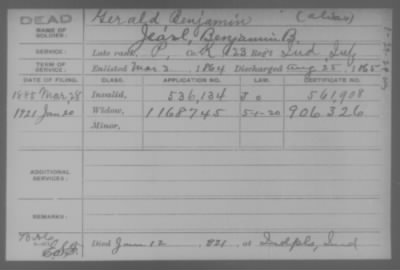 DEAD
NAME OF SOLDIER:
Gerald Benjamin (alias)
Jearl, Benjamin B.
SERVICE:
Late rank, P, Co. K 123 Reg't Ind Inf
TERM OF SERVICE:
Enlisted Mar 2, 1864 Discharged Aug 25, 1865
DATE OF FILING. CLASS. APPLICATION NO. LAW. CERTIFICATE NO.
Mar, 28 Invalid, 536,134 561,908
1921 Jan 20 Widow, 1168745 5-4-20 906326
Minor,
ADDITIONAL SERVICES:
REMARKS:
Died 12, 921, at Indpls, Ind